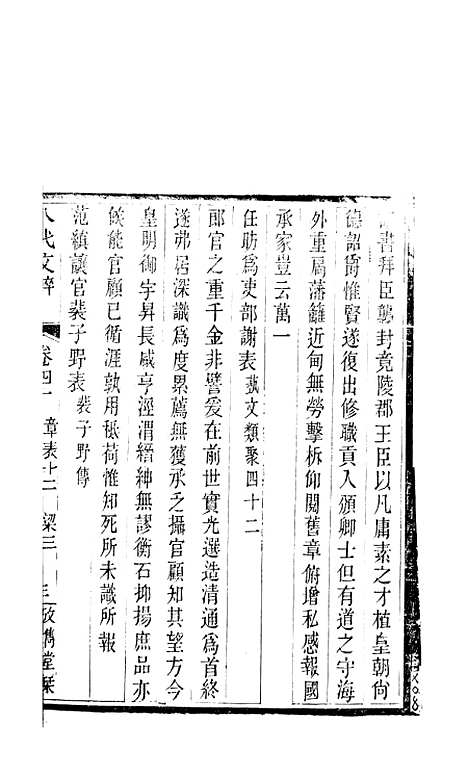 書拜臣襲封竟陵郡王臣以凡庸素之才植皇朝尙
德詔爵惟賢遂復出修職貢入頒卿士但有道之守海
外重扃藩籬近甸無勞擊柝仰閱舊章俯增私感報國
承家豈云萬一
任昉爲吏部謝表藝文類聚四十二
郎官之重千金非譬爰在前世實光選造清通爲首終
遂弗居深識爲度累薦無獲承乏攝官顧知其望方今
皇明御宇昇長咸亨涇渭縉紳無謬衡石抑揚庶品亦
俟能官顧己循涯孰用祗荷惟知死所未識所報
范縝讓官裴子野表裴子野傳
八代文粹 卷四 章表十二 梁三 三 攷雋堂栞